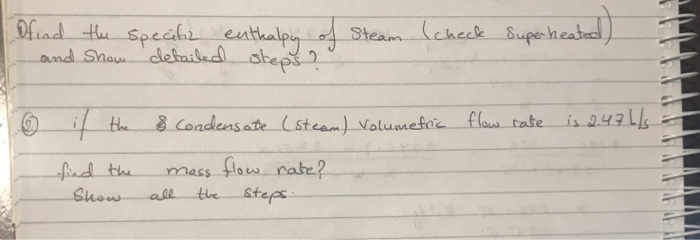 ① find the specific enthalpy of steam (check superheated)
and show detailed steps?
② if the condensate (steam) volumetric flow rate is 2.47 L/s
find the mass flow rate?
Show all the steps.